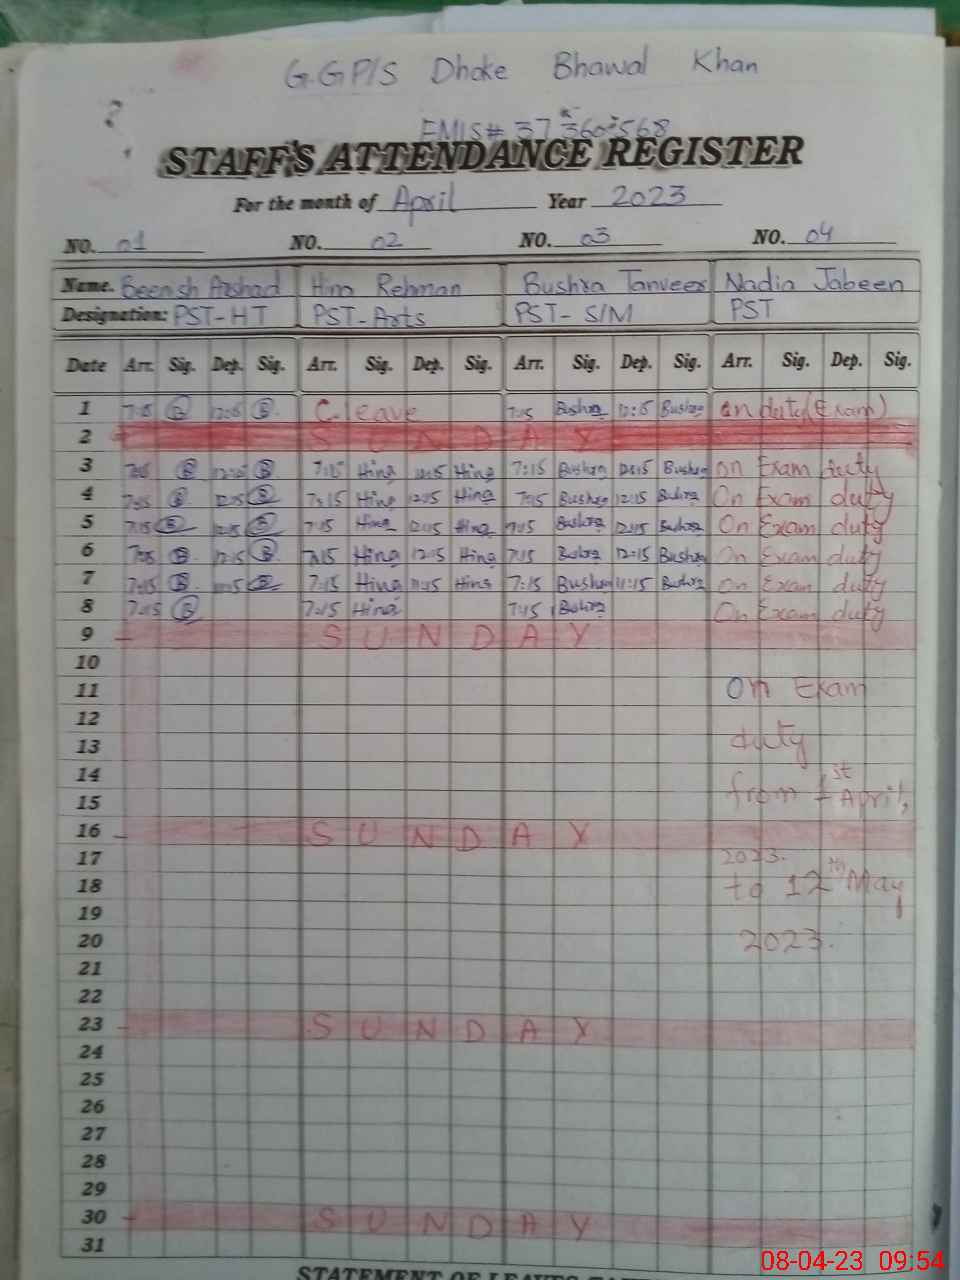 G.GP/S Dhoke Bhawal Khan
EMIS# 37360568
STAFF'S ATTENDANCE REGISTER
For the month of April Year 2023
NO. 01 NO. 02 NO. 03 NO. 04
Name. Beenish Arshad Hina Rehman Bushra Tanveer Nadia Jabeen
Designation: PST-HT PST-Arts PST- S/M PST
Date Arr. Sig. Dep. Sig. Arr. Sig. Dep. Sig. Arr. Sig. Dep. Sig. Arr. Sig. Dep. Sig.
1 7:15 B 12:15 B. C. leave 7:15 Bushra 12:15 Bushra On duty (Exam)
2 S U N D A Y
3 B 12:15 B 7:15 Hina 12:15 Hina 7:15 Bushra 12:15 Bushra On Exam duty
4 7:15 B 12:15 B 7:15 Hina 12:15 Hina 7:15 Bushra 12:15 Bushra On Exam duty
5 7:15 B 12:15 B 7:15 Hina 12:15 Hina 7:15 Bushra 12:15 Bushra On Exam duty
6 7:15 B 12:15 B 7:15 Hina 12:15 Hina 7:15 Bushra 12:15 Bushra On Exam duty
7 7:15 B 11:15 B 7:15 Hina 11:15 Hina 7:15 Bushra 11:15 Bushra On Exam duty
8 7:15 B 7:15 Hina 7:15 Bushra On Exam duty
9 S U N D A Y
10
11 On Exam
12
13 duty
14
15 from 1st April,
16 S U N D A Y
17 2023.
18 to 12th May
19
20 2023.
21
22
23 S U N D A Y
24
25
26
27
28
29
30 S U N D A Y
31
STATEMENT OF LEAVES
08-04-23 09:54